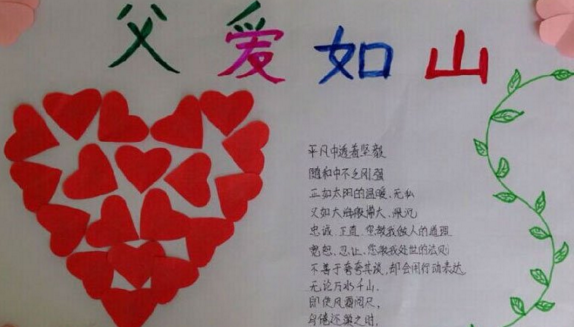 父爱如山
平凡中透着坚毅
随和中不乏刚强
正如太阳的温暖、无私
又如大海般博大、
忠诚、正直,您教我做人的道理
宽恕、忍让,您教我处世的法则
不善于夸夸其谈,却会用行动表达
无论万水千山,
即使风霜